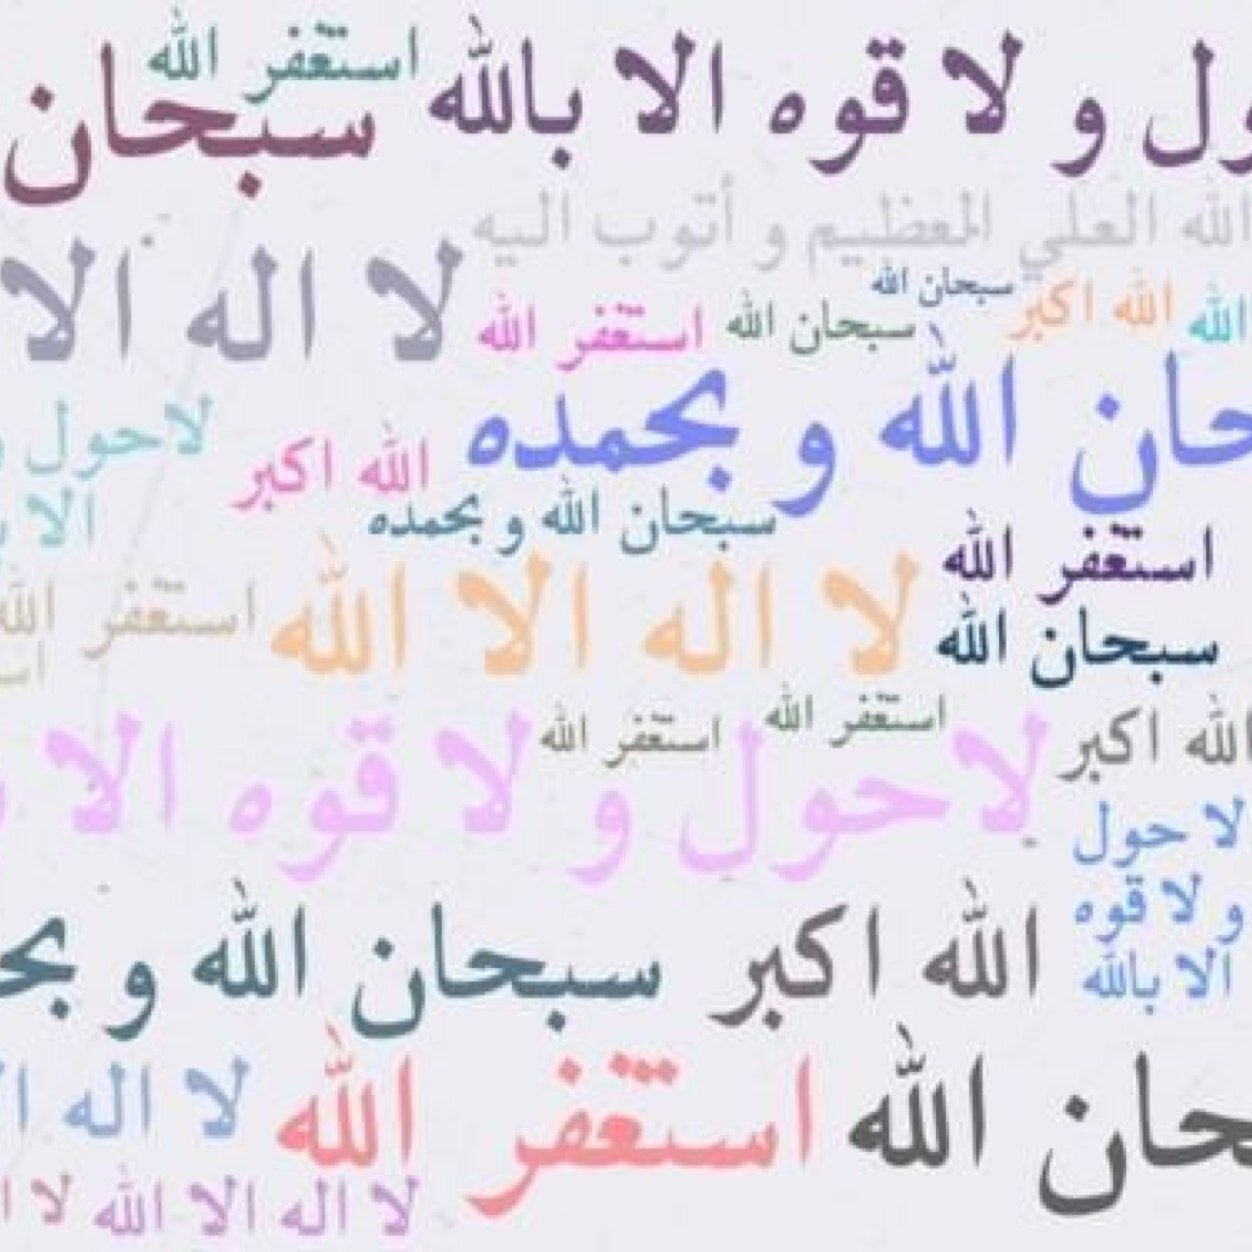 استغفر الله
ول و لا قوه الا بالله
سبحان
الله العلي العظيم و أتوب اليه
لا اله الا
سبحان الله
الله اكبر
الله
استغفر الله
سبحان الله
حان الله و بحمده
لاحول
الا
الله اكبر
سبحان الله و بحمده
استغفر الله
استغفر الله
لا اله الا الله
سبحان الله
استغفر الله
استغفر الله
الله اكبر
لاحول و لا قوه الا
لا حول
و لا قوه
الا بالله
الله اكبر
سبحان الله و بح
لا اله
استغفر الله
حان الله
لا اله الا الله
لا